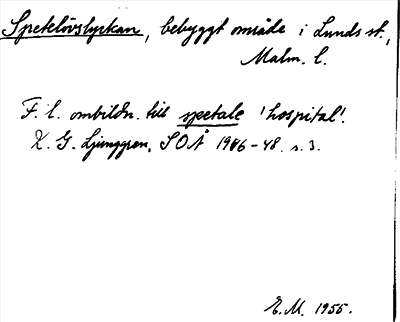 Spetelövslyckan, bebyggt område i Lunds st.,
Malm. l.
F. l. ombildn. till spetale 'hospital'.
K. G. Ljunggren, SOÅ 1946-48. s. 3.
E. M. 1955.